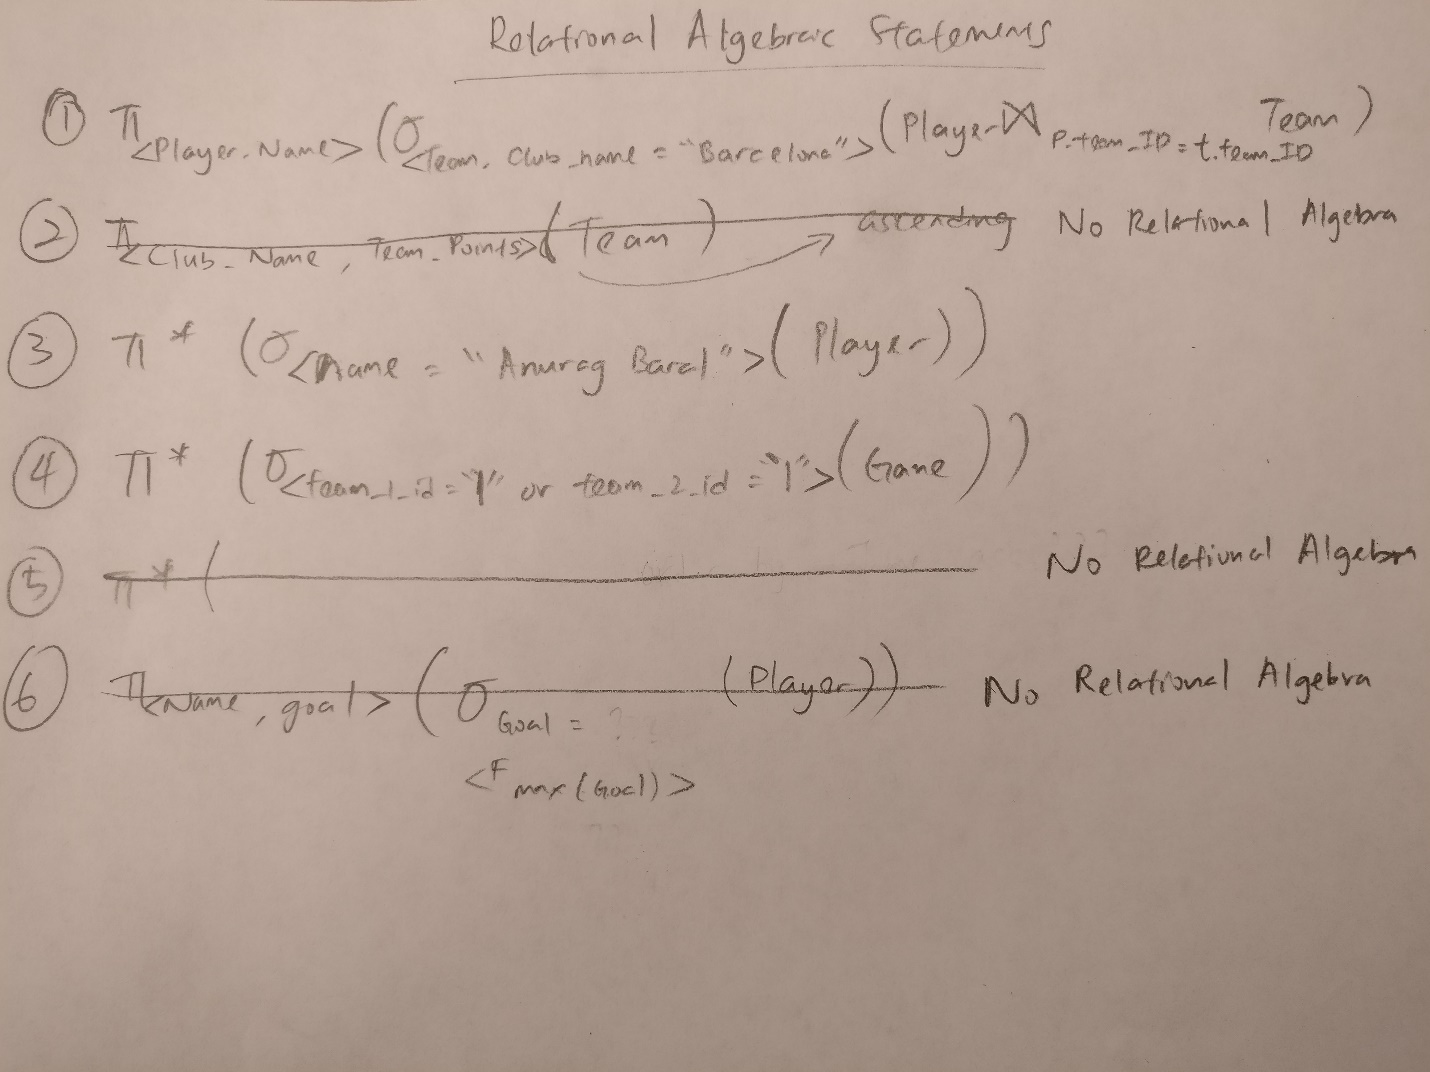 Relational Algebraic Statements
① π <Player.Name> (σ <Team. Club_name = "Barcelona"> (Player ⋈ P.team_ID = t.team_ID Team )
② π <Club_Name, Team_Points> ( Team ) ascending No Relational Algebra
③ π * (σ <name = "Anurag Baral"> ( Player))
④ π * (σ <team_1_id = "1" or team_2_id = "1"> (Game))
⑤ π * ( No Relational Algebra
⑥ π <Name, goal> ( σ Goal = ? (Player)) No Relational Algebra
<F max (Goal)>